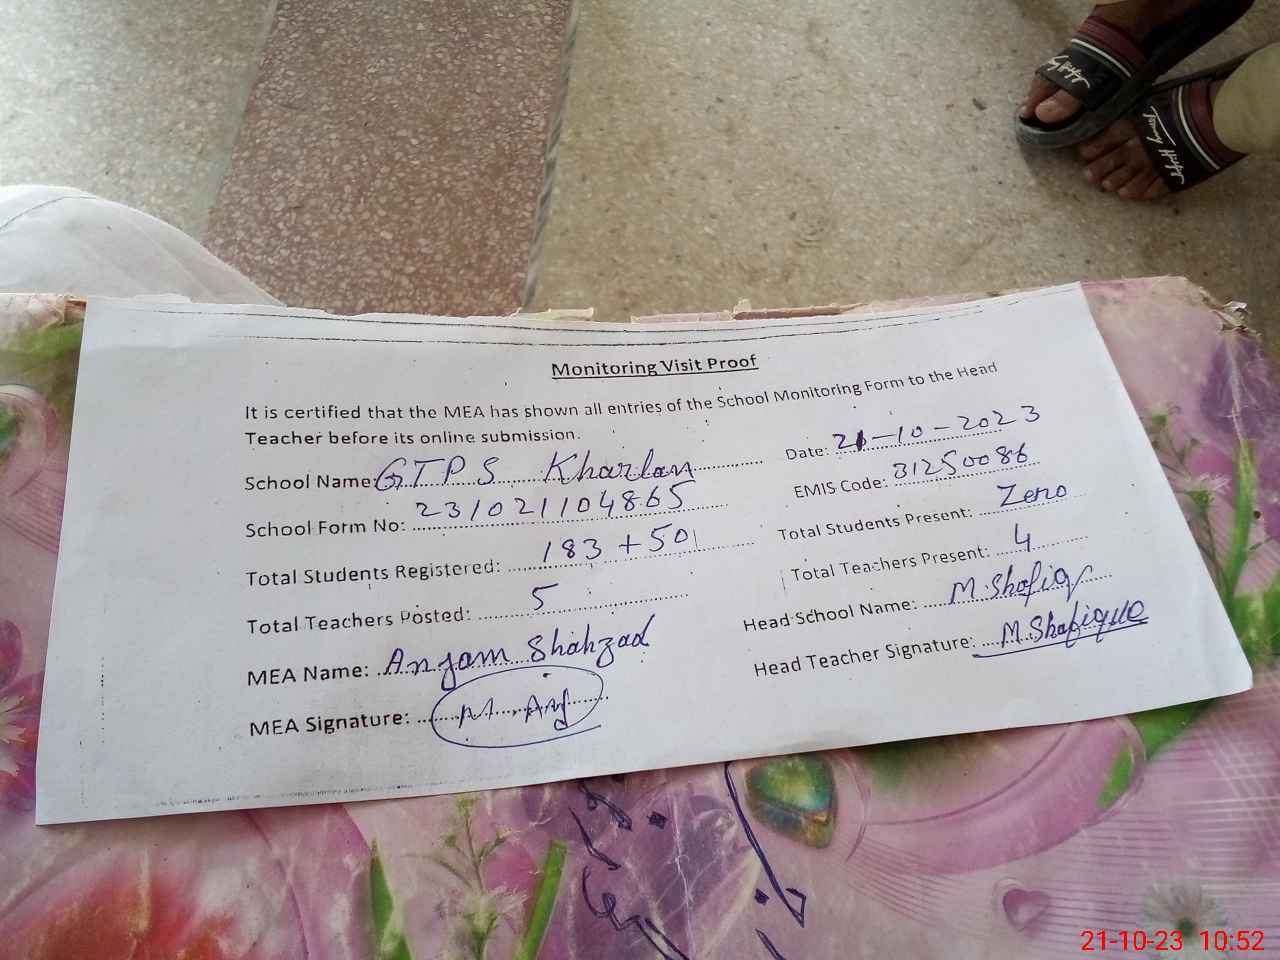 Monitoring Visit Proof
It is certified that the MEA has shown all entries of the School Monitoring Form to the Head
Teacher before its online submission.
School Name: GTPS Kharlan Date: 21-10-2023
School Form No: 231021104865 EMIS Code: 31250086
Total Students Registered: 183 + 50 Total Students Present: Zero
Total Teachers Posted: 5 Total Teachers Present: 4
MEA Name: Anjam Shahzad Head School Name: M. Shafiq
MEA Signature: M. Anj Head Teacher Signature: M. Shafique
21-10-23 10:52